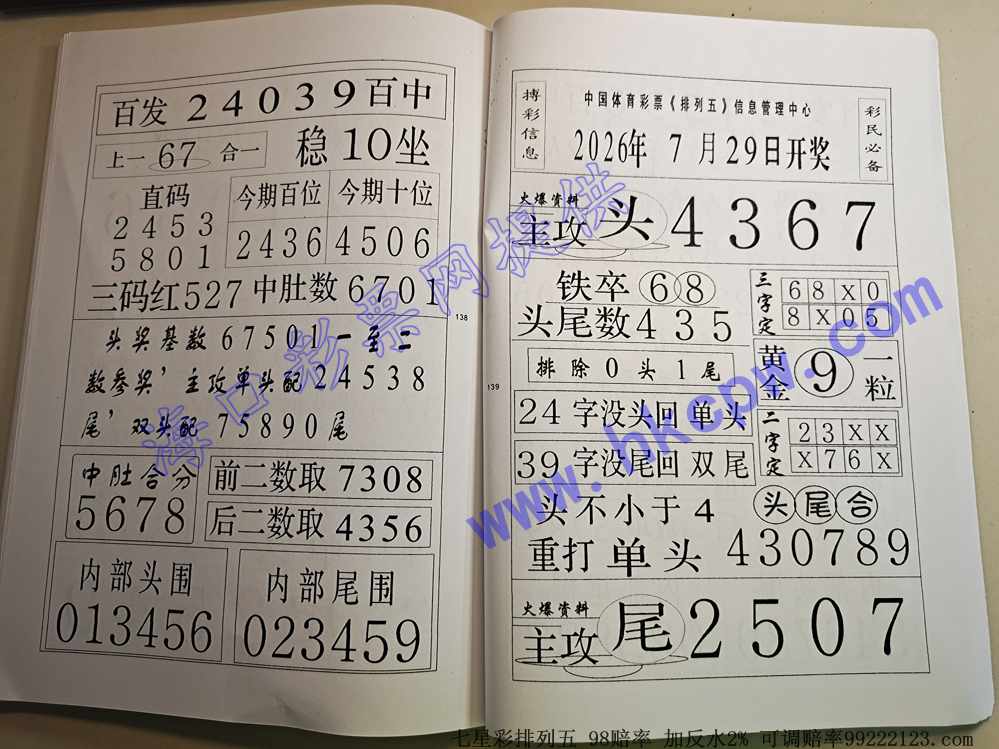 百发24039百中
上一67合一
稳10坐
直码
2453
5801
今期百位
2436
今期十位
4506
三码红527中肚数6701
头奖基数67501一至二
数参奖，主攻单头配24538
尾，双头配75890尾
中肚合分
5678
前二数取7308
后二数取4356
内部头围
013456
内部尾围
023459
138
139
搏彩信息
中国体育彩票《排列五》信息管理中心
2026年7月29日开奖
彩民必备
火爆资料
主攻头4367
铁卒68
头尾数435
排除0头1尾
24字没头回单头
39字没尾回双尾
三字定
68X0
8X05
黄金9一粒
二字定
23XX
X76X
头不小于4
头尾合
重打单头430789
火爆资料
主攻尾2507
海口彩票网提供
www.hkcpw.com
七星彩排列五 98赔率 加反水2% 可调赔率99222123.com